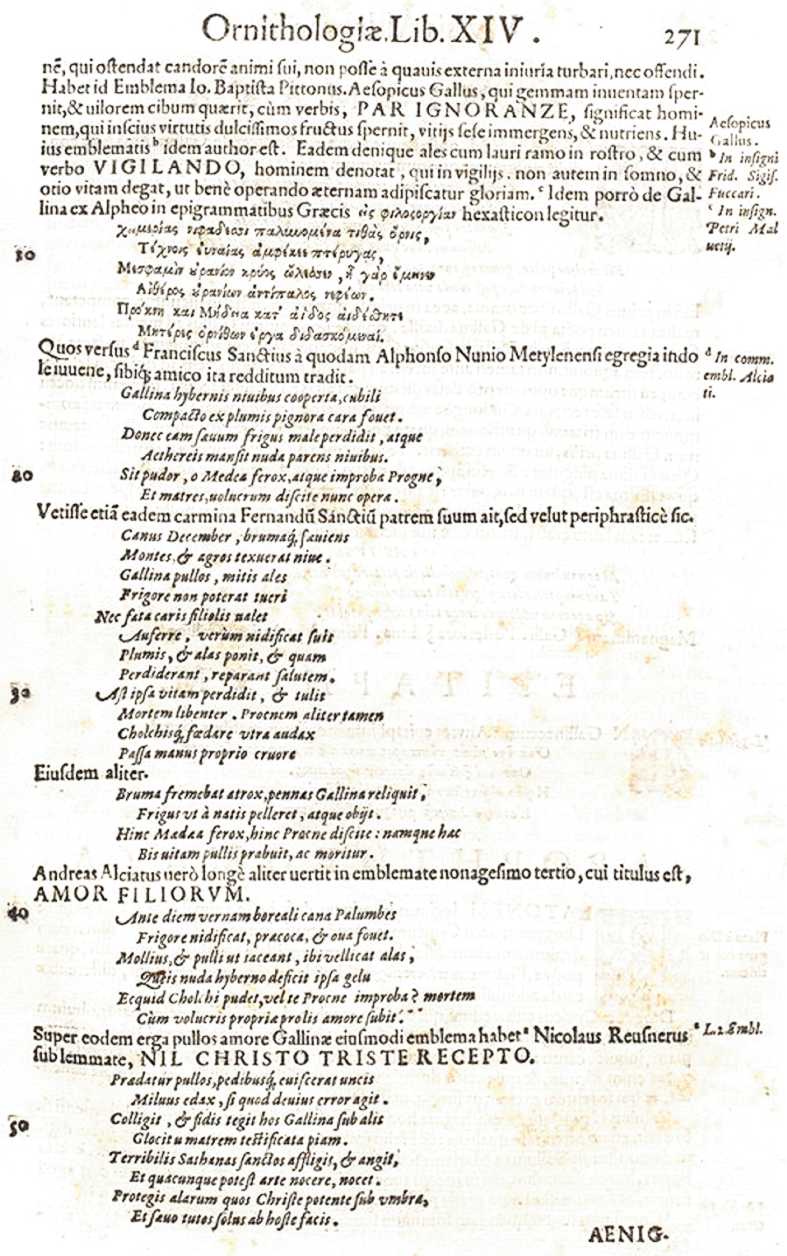 Ornithologiæ. Lib. XIV.
271
nẽ, qui ostendat candorẽ animi sui, non posse à quauis externa iniuria turbari, nec offendi.
Habet id Emblema Io. Baptista Pittonus. Aesopicus Gallus, qui gemmam inuentam sper-
nit, & uilorem cibum quærit, cùm verbis, PAR IGNORANZE, significat homi-
nem, qui inscius virtutis dulcissimos fructus spernit, vitijs sese immergens, & nutriens. Hu-
ius emblematis ᵇ idem author est. Eadem denique ales cum lauri ramo in rostro, & cum
verbo VIGILANDO, hominem denotat, qui in vigilijs. non autem in somno, &
otio vitam degat, ut benè operando æternam adipiscatur gloriam. ᶜ Idem porrò de Gal-
lina ex Alpheo in epigrammatibus Græcis εἰς φιλοςοργίαν hexasticon legitur.
Aesopicus
Gallus.
ᵇ In insigni
Frid. Sigis.
Fuccari.
ᶜ In insign.
Petri Mal
uetij.
χειμερίαις νιφάδεσσι παλυνομένα τιθὰς ὄρνις,
10
Τέχνοις εὐναίας ἀμφέχει πτέρυγας,
Μεσφαμὶν οὐράνιον κρύος ὤλεσεν, ἦ γὰρ ἔμεινεν
Αἰθέρος οὐρανίων ἀντίπαλος νεφέων.
Πρόκνη και Μήδεια κατ' ἄιδος αἰδέσθητε
Μητέρες ὀρνίθων ἔργα διδασκόμεναι.
Quos versus ᵈ Franciscus Sanctius à quodam Alphonso Nunio Metylenensi egregia indo
le iuuene, sibiq; amico ita redditum tradit.
ᵈ In comm.
embl. Alcia
ti.
Gallina hybernis niuibus cooperta, cubili
Compacto ex plumis pignora cara fouet.
Donec eam sæuum frigus male perdidit, atque
Aethereis mansit nuda parens niuibus.
20
Sit pudor, o Medea ferox, atque improba Progne,
Et matres, uolucrum discite nunc opera.
Vetisse etiã eadem carmina Fernandũ Sanctiũ patrem suum ait, sed velut periphrasticè sic.
Canus December, brumaq; sæuiens
Montes, & agros texuerat niue.
Gallina pullos, mitis ales
Frigore non poterat tueri
Nec fata caris filiolis ualet
Auferre, verùm nidificat suit
Plumis, & alas ponit, & quam
Perdiderant, reparant salutem.
30
Ast ipsa vitam perdidit, & tulit
Mortem libenter. Procnem aliter tamen
Cholchisq; fœdare vtra audax
Passa manus proprio cruore
Eiusdem aliter.
Bruma fremebat atrox, pennas Gallina reliquit,
Frigus vt à natis pelleret, atque obijt.
Hinc Madæa ferox, hinc Procne discite: namque hæc
Bis uitam pullis præbuit, ac moritur.
Andreas Alciatus uerò longè aliter uertit in emblemate nonagesimo tertio, cui titulus est,
AMOR FILIORVM.
40
Ante diem vernam boreali cana Palumbes
Frigore nidificat, præcoca, & oua fouet.
Mollius, & pulli ut iaceant, ibi vellicat alas,
Queis nuda hyberno deficit ipsa gelu
Ecquid Cholchi pudet, vel te Procne improba? mortem
Cùm volucris propria prolis amore subit.
Super eodem erga pullos amore Gallinæ eiusmodi emblema habet ᵉ Nicolaus Reusnerus
sub lemmate, NIL CHRISTO TRISTE RECEPTO.
ᵉ L. 2. Embl.
Prædatur pullos, pedibusq; euiscerat uncis
Miluus edax, si quod deuius error agit.
Colligit, & fidis tegit hos Gallina sub alis
50
Glocitu matrem testificata piam.
Terribilis Sathanas sanctos affligit, & angit,
Et quacunque potest arte nocere, nocet.
Protegis alarum quos Christe potente sub vmbra,
Et sæuo tutos solus ab hoste facis.
AENIG-